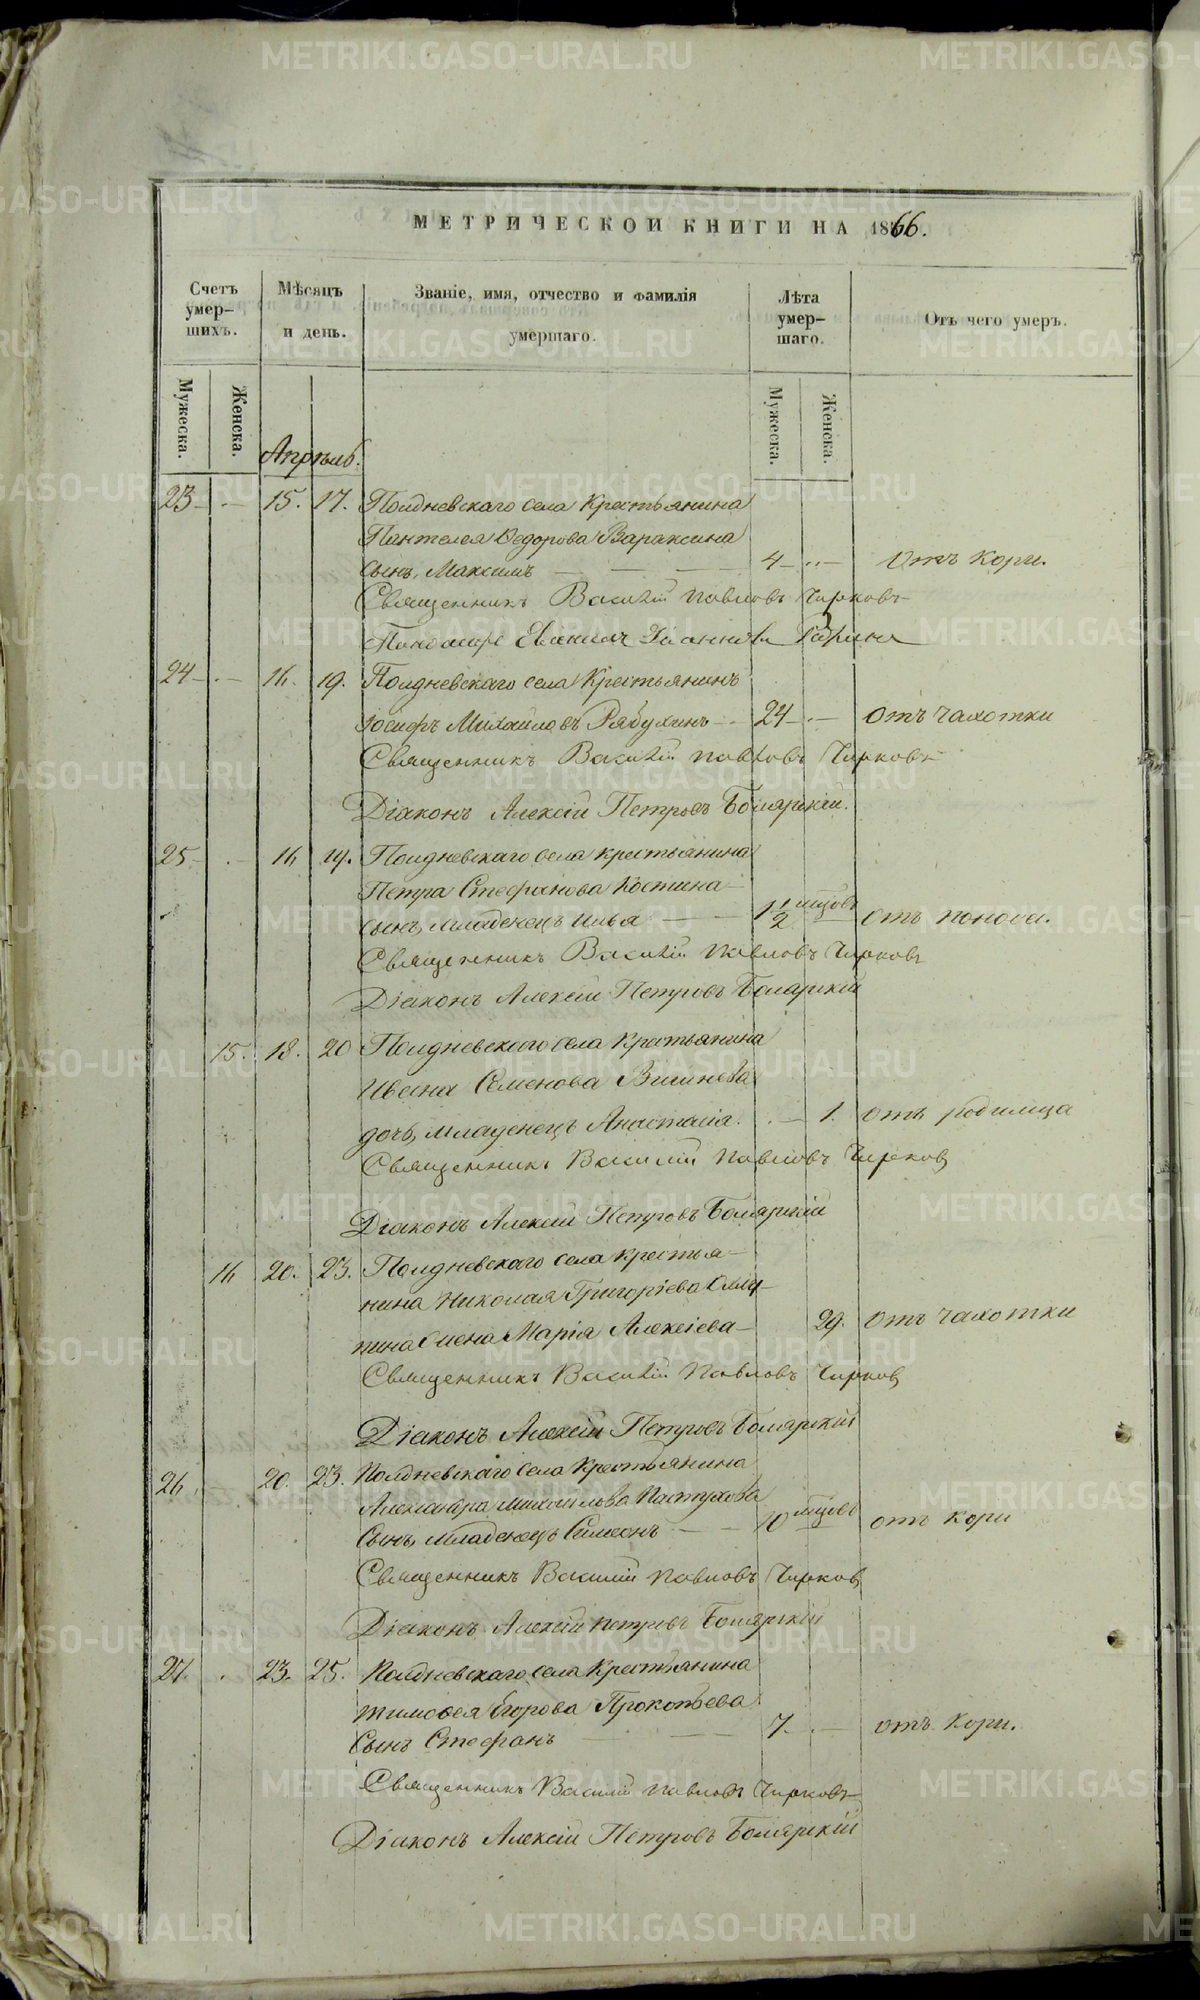 МЕТРИЧЕСКОЙ КНИГИ НА 1866.
Счетъ умер-шихъ.
Мѣсяцъ и день.
Званіе, имя, отчество и фамилія умершаго.
Лѣта умер-шаго.
Отъ чего умеръ.
Мужеска. Женска. Мужеска. Женска.
Апрѣль.
23 15. 17. Полдневскаго села Крестьянина
Пантелея Ѳедорова Вараксина
сынъ, Максимъ 4 Отъ кори.
Священникъ Василій Павловъ Чирковъ
Пономарь
24 16. 19. Полдневскаго села Крестьянинъ
Іосифъ Михайловъ Рябухинъ 24 Отъ чахотки
Священникъ Василій Павловъ Чирковъ
Діаконъ Алексій Петровъ Болярскій.
25 16 19. Полдневскаго села крестьянина
Петра Стефанова Костина
сынъ, младенецъ Илья 1 1/2 мѣсцовъ Отъ поноса.
Священникъ Василій Павловъ Чирковъ
Діаконъ Алексій Петровъ Болярскій
15. 18. 20 Полдневскаго села Крестьянина
Ивана Семенова
дочь, младенецъ Анастасія. 1. Отъ родимца
Священникъ Василій Павловъ Чирковъ
Діаконъ Алексій Петровъ Болярскій
16 20. 23. Полдневскаго села крестья-
нина Николая Григоріева
жена Марія Алексіева 29. Отъ чахотки
Священникъ Василій Павловъ Чирковъ
Діаконъ Алексій Петровъ Болярскій
26 20. 23. Полдневскаго села Крестьянина
Александра Михайлова Пастухова
Сынъ, младенецъ Симеонъ 10 мѣсцовъ отъ кори
Священникъ Василій Павловъ Чирковъ
Діаконъ Алексій Петровъ Болярскій
27. 23. 25. Полдневскаго села Крестьянина
Тимоѳея Егорова Прокопьева
Сынъ Стефанъ 7. отъ кори.
Священникъ Василій Павловъ Чирковъ
Діаконъ Алексій Петровъ Болярскій
METRIKI.GASO-URAL.RU